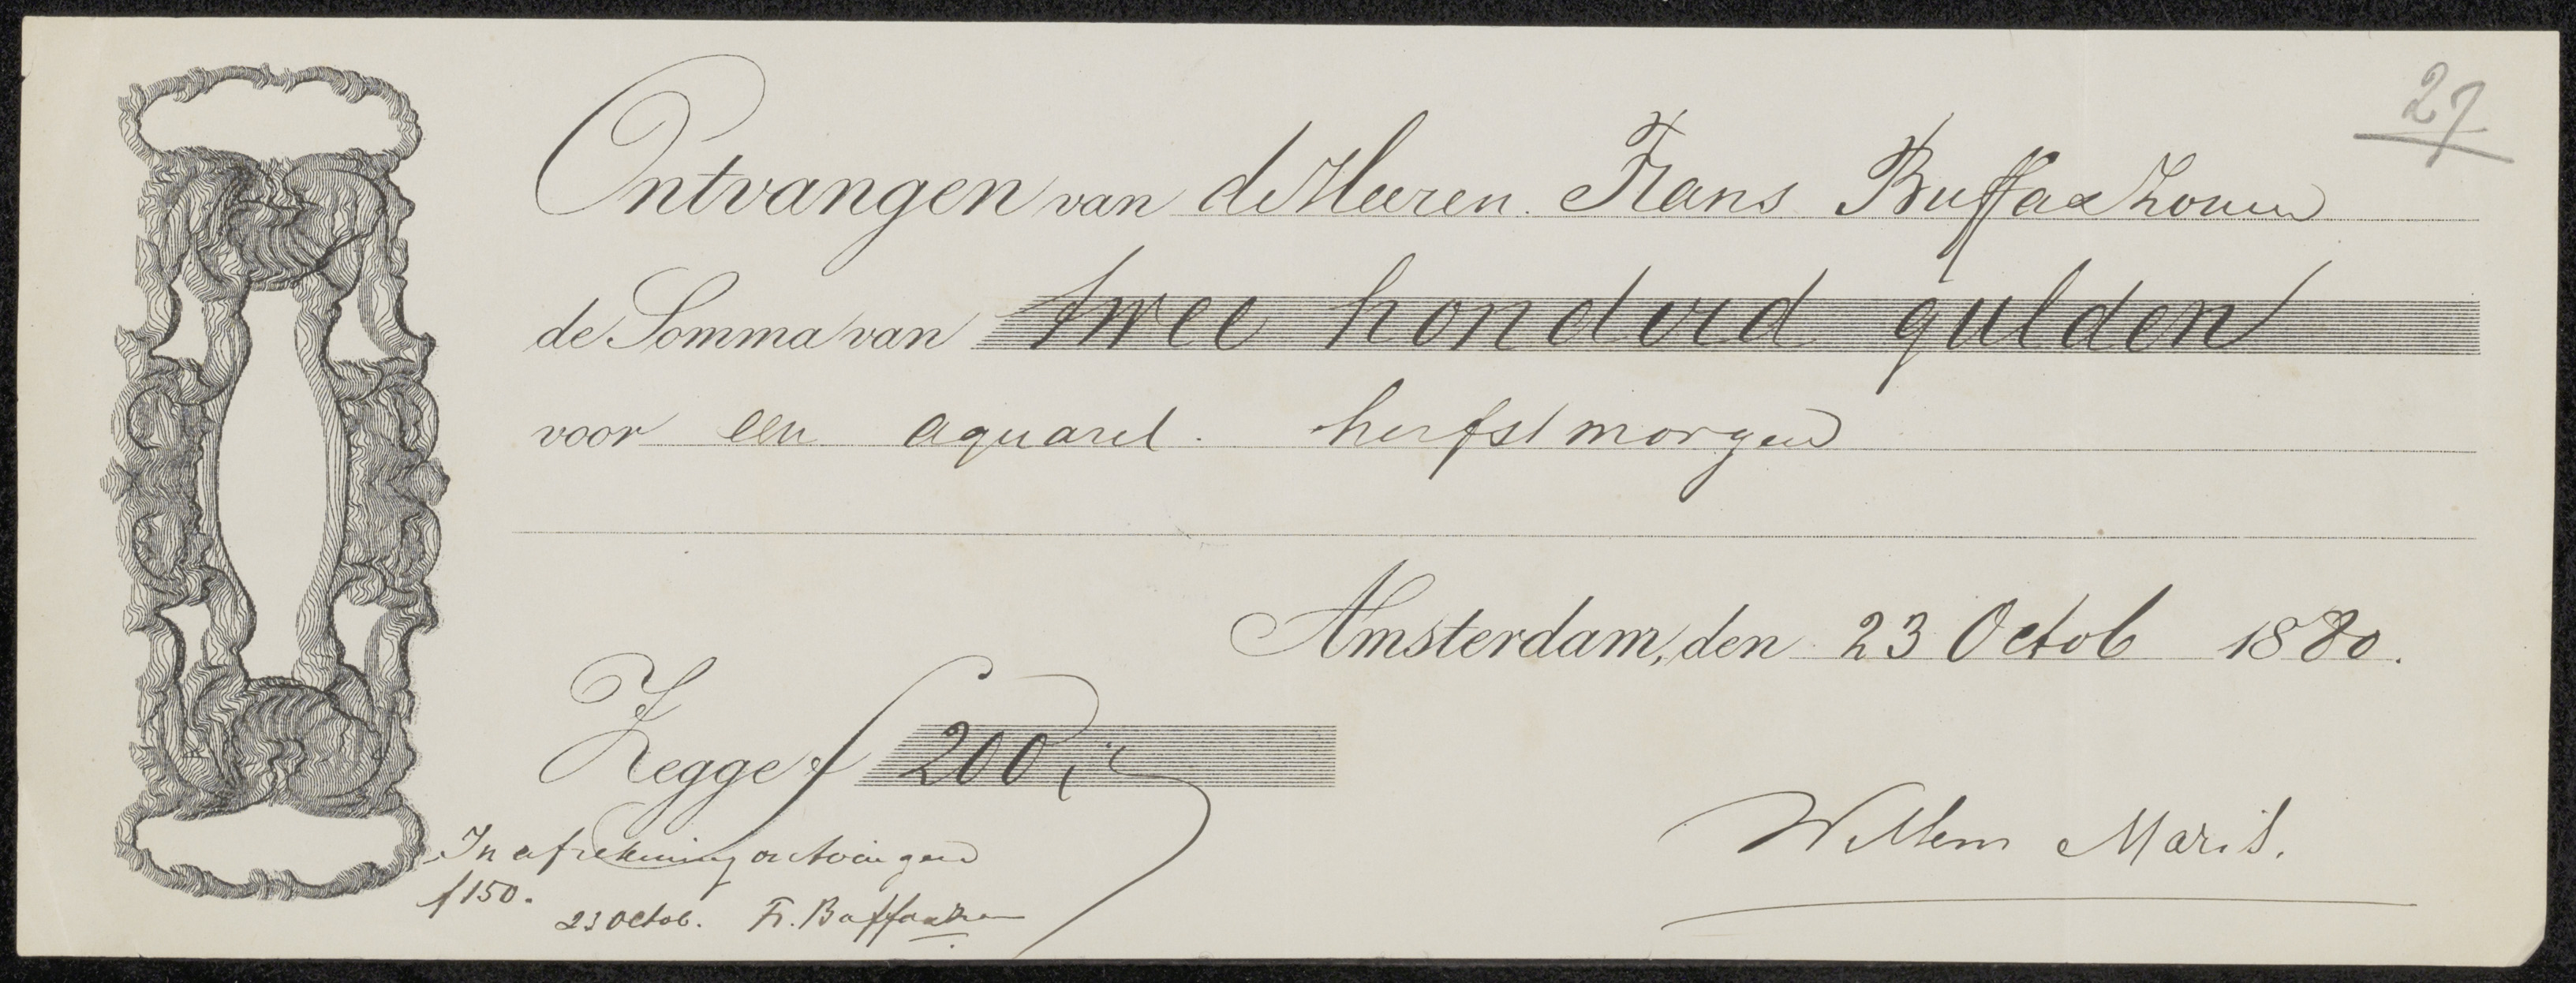 27
Ontvangen van de Heeren Frans Buffa & Zonen
de Somma van twee honderd gulden
voor een aquarel. herfstmorgen
Amsterdam, den 23 Octob 1880.
Zegge f 200,
Willem Maris.
In afrekening ontvangen
f 150.
23 Octob. Fr. Buffa & Zn